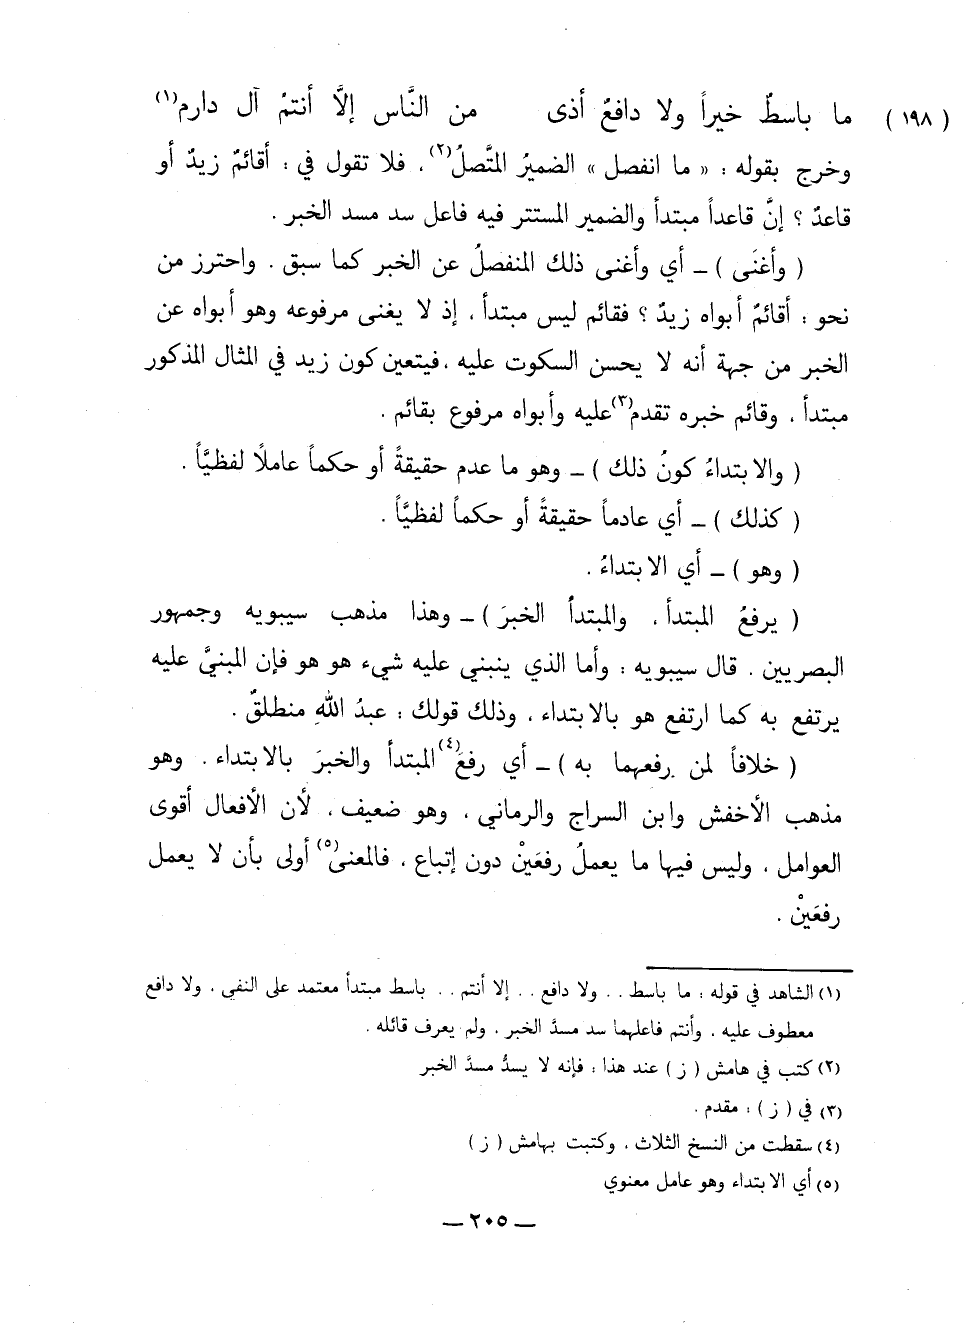 ( ١٩٨ ) ما باسطٌ خيراً ولا دافعٌ أذى من النَّاس إلاَّ أنتمُ آل دارم(١)
وخرج بقوله : « ما انفصل » الضميرُ المتَّصلُ(٢) ، فلا تقول في : أقائمٌ زيدٌ أو
قاعدٌ ؟ إنَّ قاعداً مبتدأ والضمير المستتر فيه فاعل سد مسد الخبر .
( وأغنَى ) ــ أي وأغنى ذلك المنفصلُ عن الخبر كما سبق . واحترز من
نحو : أقائمٌ أبواه زيدٌ ؟ فقائم ليس مبتدأ ، إذ لا يغنى مرفوعه وهو أبواه عن
الخبر من جهة أنه لا يحسن السكوت عليه ، فيتعين كون زيد في المثال المذكور
مبتدأ ، وقائم خبره تقدم(٣) عليه وأبواه مرفوع بقائم .
( والابتداءُ كونُ ذلك ) ــ وهو ما عدم حقيقةً أو حكماً عاملًا لفظيَّاً .
( كذلك ) ــ أي عادماً حقيقةً أو حكماً لفظيَّاً .
( وهو ) ــ أي الابتداءُ .
( يرفعُ المبتدأ ، والمبتدأُ الخبرَ ) ــ وهذا مذهب سيبويه وجمهور
البصريين . قال سيبويه : وأما الذي ينبني عليه شيء هو هو فإن المبنيَّ عليه
يرتفع به كما ارتفع هو بالابتداء ، وذلك قولك : عبدُ اللهِ منطلقٌ .
( خلافاً لمن رفعهما به ) ــ أي رفعَ(٤) المبتدأ والخبرَ بالابتداء . وهو
مذهب الأخفش وابن السراج والرماني ، وهو ضعيف ، لأن الأفعال أقوى
العوامل ، وليس فيها ما يعملُ رفعَيْن دون إتباع ، فالمعنى(٥) أولى بأن لا يعمل
رفعَيْن .
(١) الشاهد في قوله : ما باسط .. ولا دافع .. إلا أنتم .. باسط مبتدأ معتمد على النفي ، ولا دافع
معطوف عليه ، وأنتم فاعلهما سد مسدَّ الخبر ، ولم يعرف قائله .
(٢) كتب في هامش ( ز ) عند هذا : فإنه لا يسدُّ مسدَّ الخبر
(٣) في ( ز ) : مقدم .
(٤) سقطت من النسخ الثلاث ، وكتبت بهامش ( ز )
(٥) أي الابتداء وهو عامل معنوي
ــ ٢٠٥ ــ